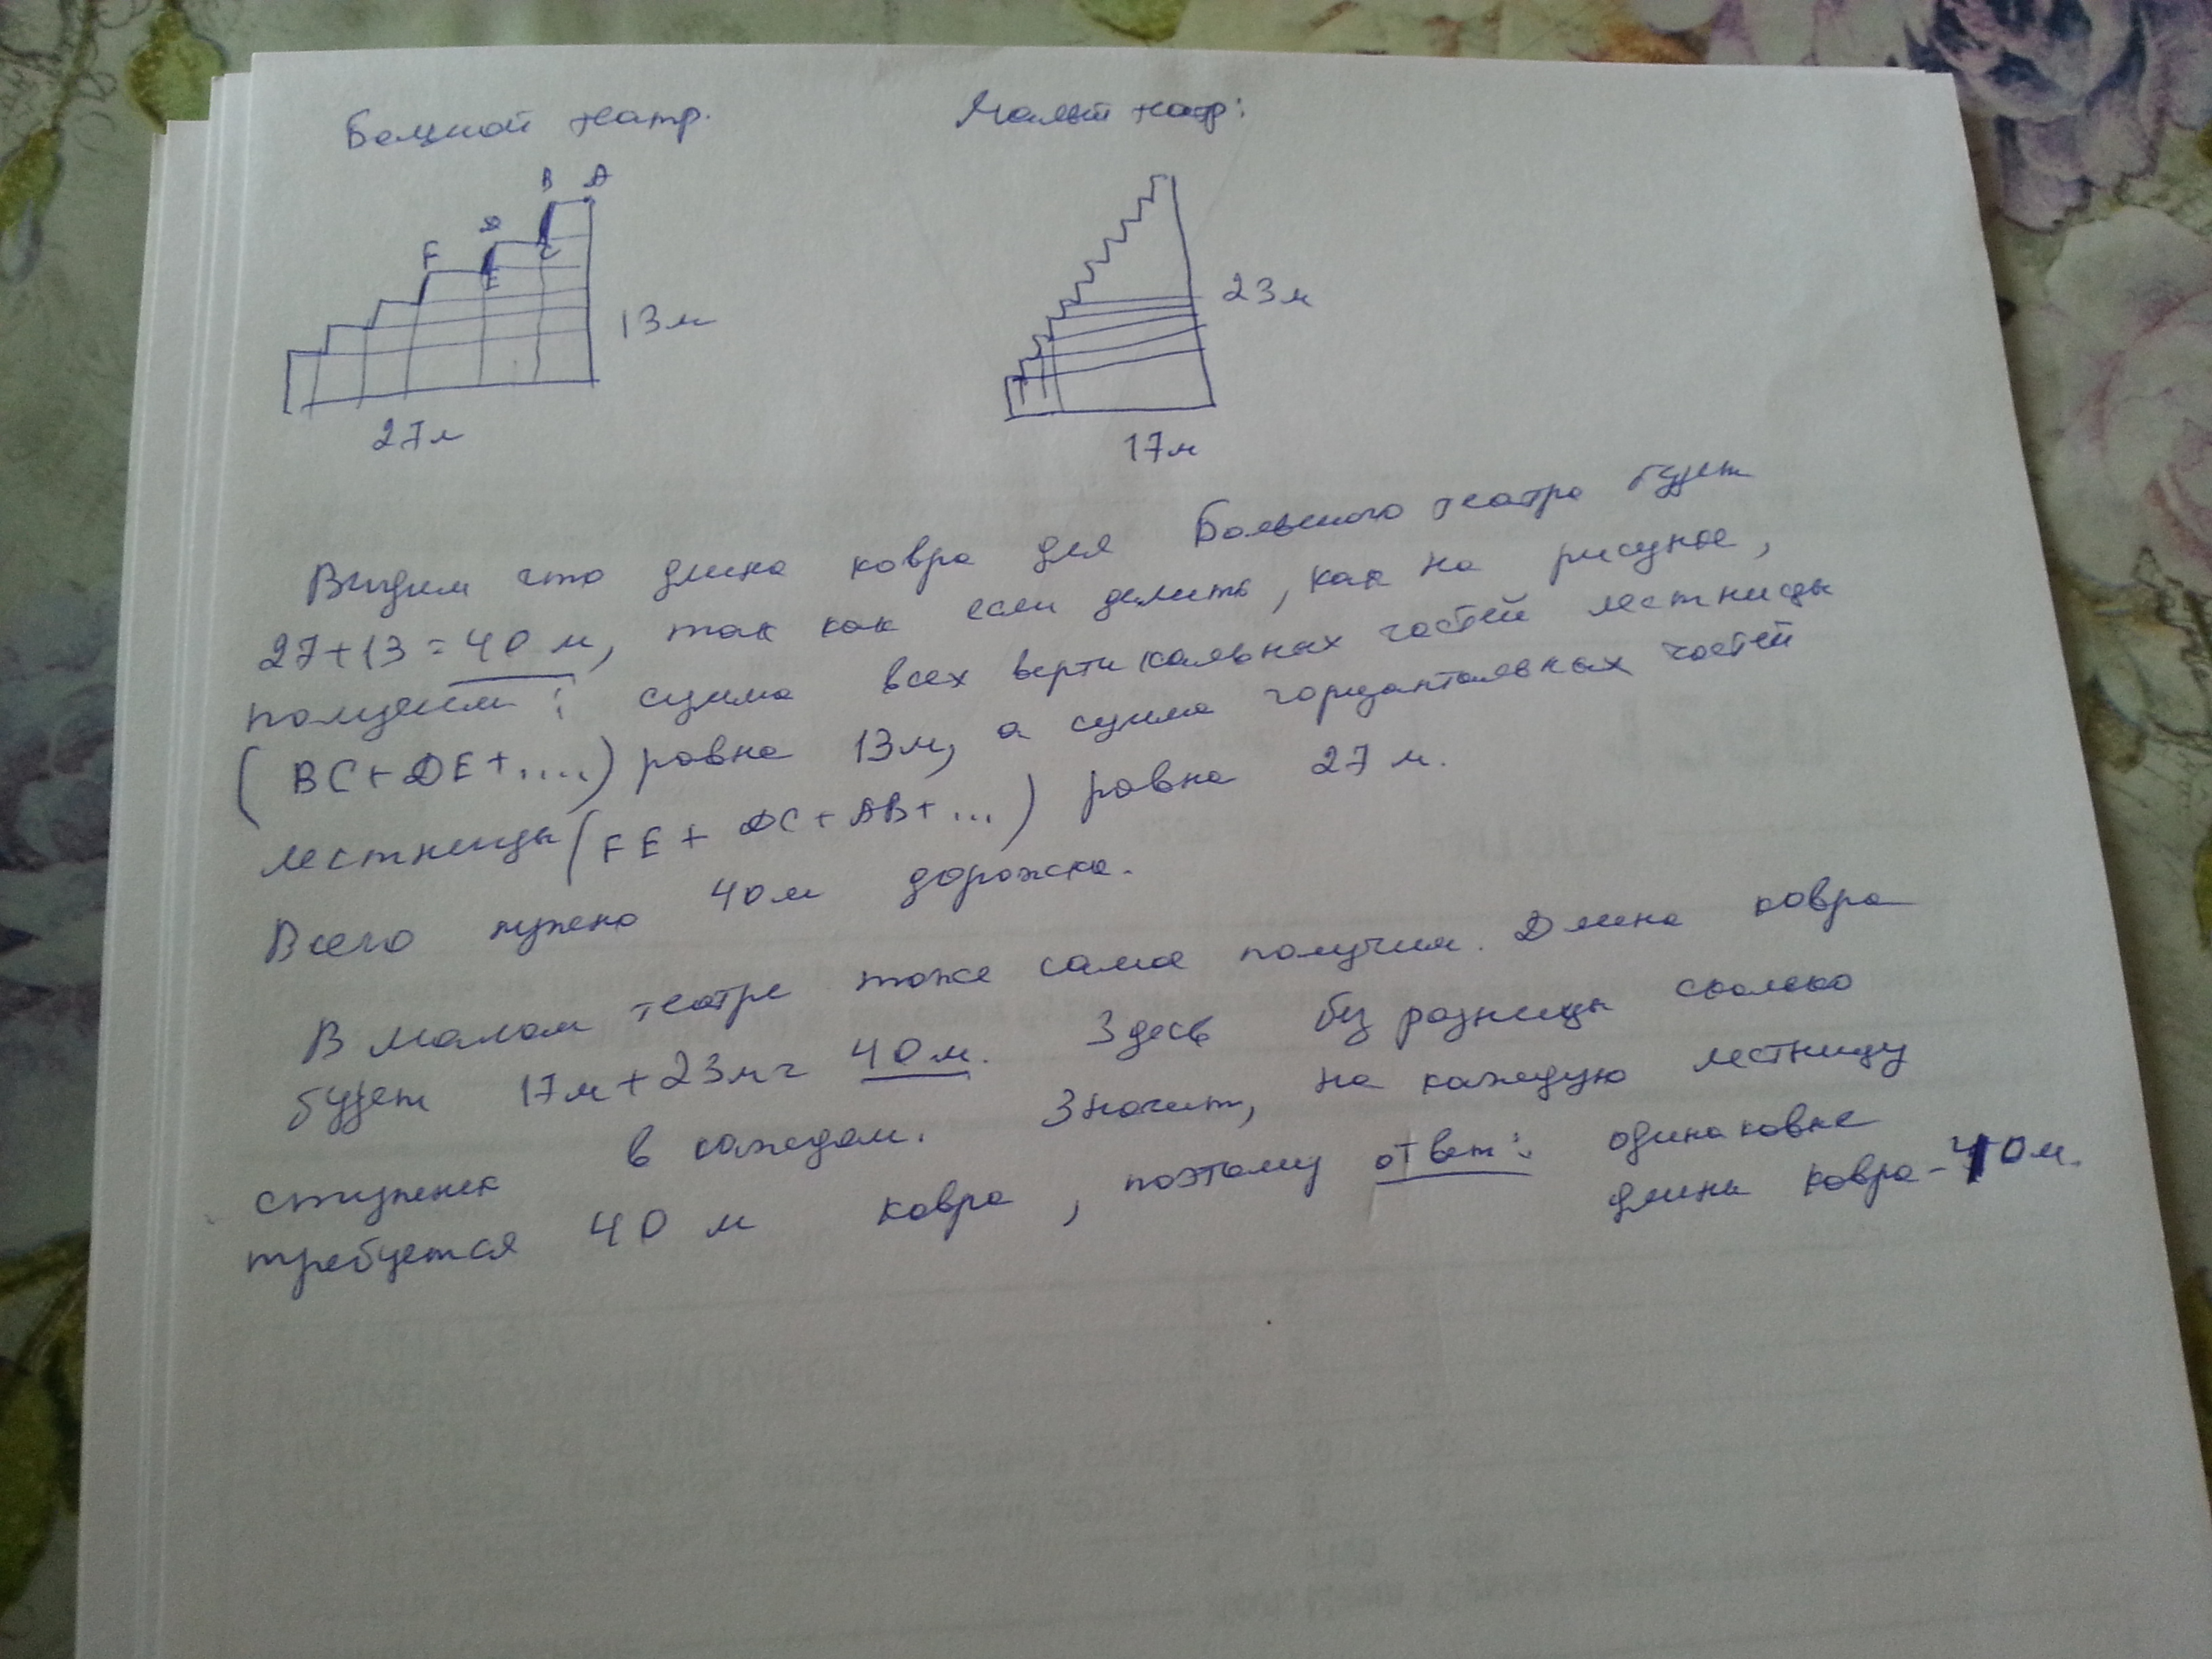 Большой театр.
Малый театр:
B A
D
F
C
E
13м
27м
23м
17м
Видим что длина ковра для Большого театра будет
27+13=40 м, так как если делить, как на рисунке,
получим: сумма всех вертикальных частей лестницы
(BC+DE+....) равна 13м, а сумма горизонтальных частей
лестницы (FE+DC+AB+...) равна 27 м.
Всего нужно 40м дорожка.
В Малом театре тоже самое получим. Длина ковра
будет 17м+23м= 40м. Здесь без разницы сколько
ступенек в каждом. Значит, на каждую лестницу
требуется 40 м ковра, поэтому ответ: одинаковые
длины ковра-40м.